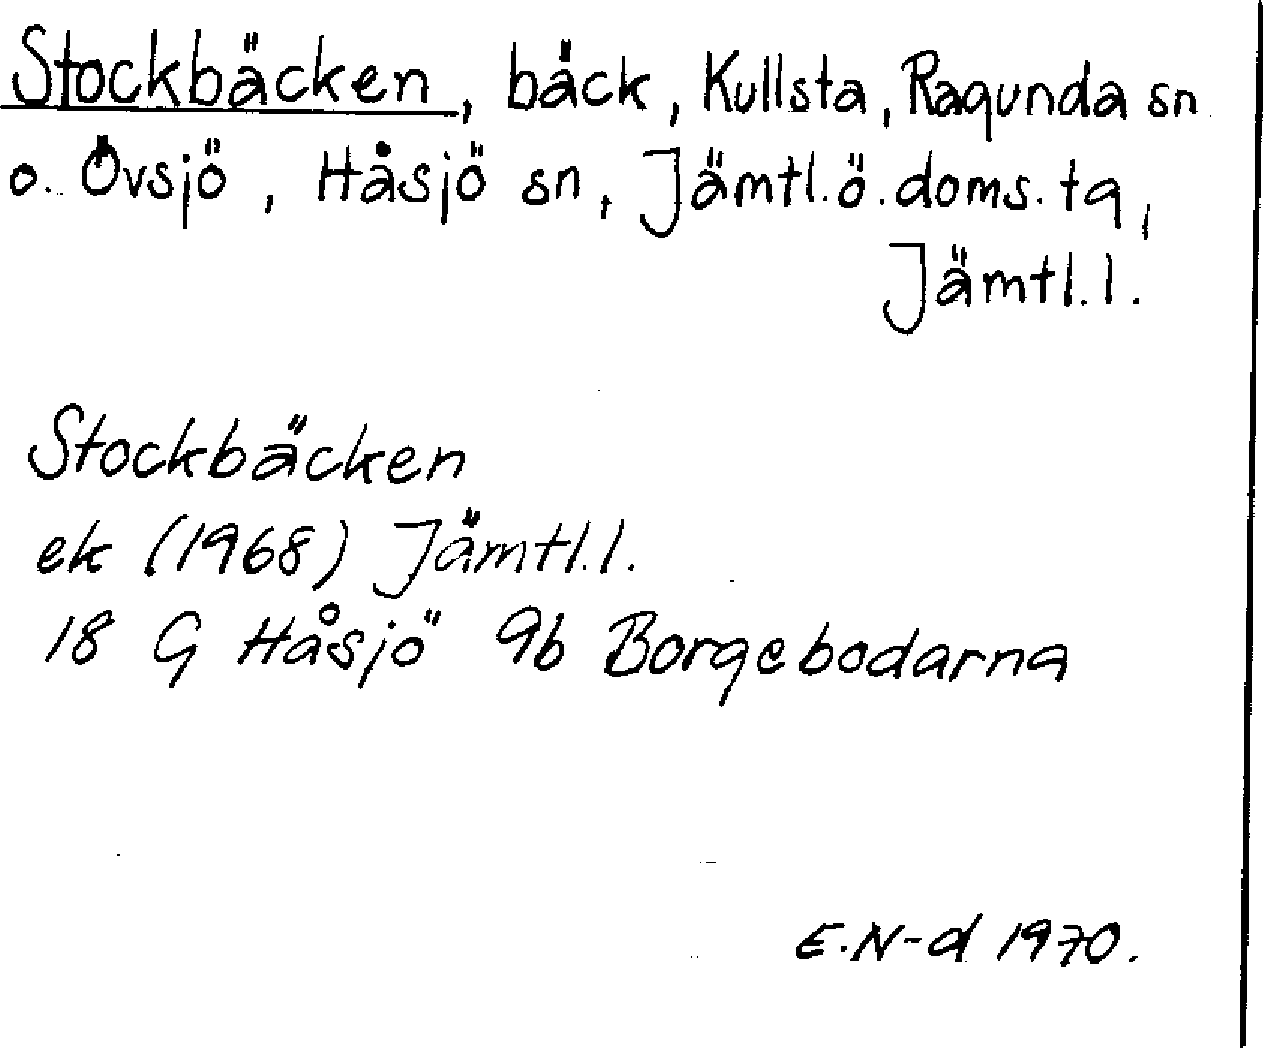 Stockbäcken, bäck, Kullsta, Ragunda sn
o. Övsjö, Håsjö sn, Jämtl.ö.doms.tg,
Jämtl.l.
Stockbäcken
ek (1968) Jämtl.l.
18 G Håsjö 9b Borgebodarna
E.N-d 1970.